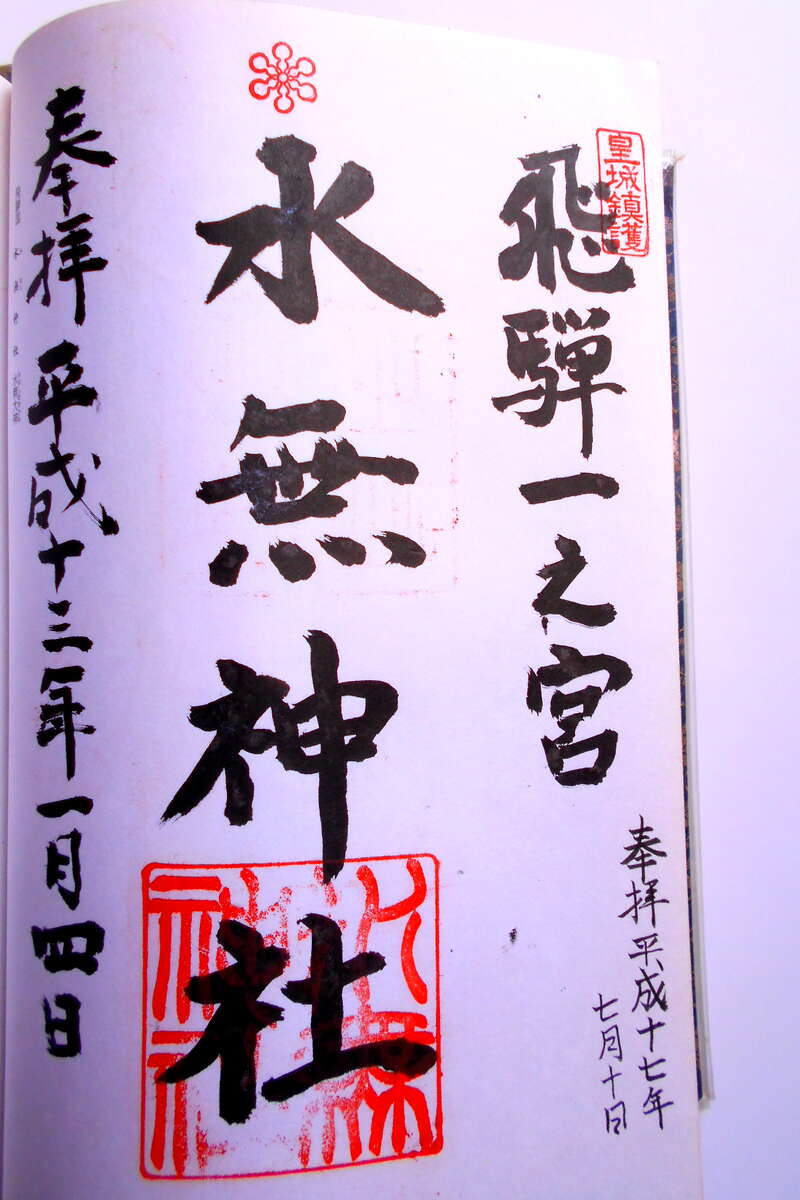 皇城鎮護
飛騨一之宮
奉拝平成十七年
七月十日
水無神社
奉拝 平成十三年一月四日